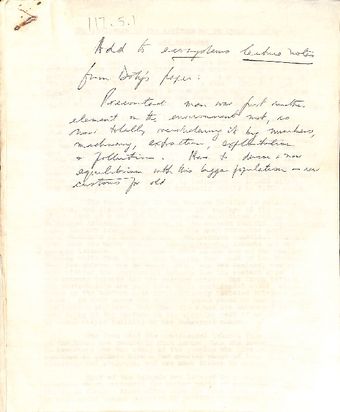 117.5.1
Add to ecosystems lecture notes
from Doty's paper:
Precontact man was just another
element in the environment not, as
now totally revolutionizing it by numbers,
machinery, extraction, exploitation
& pollution. Have to devise a new
equilibrium with this bigger population &
customs for old